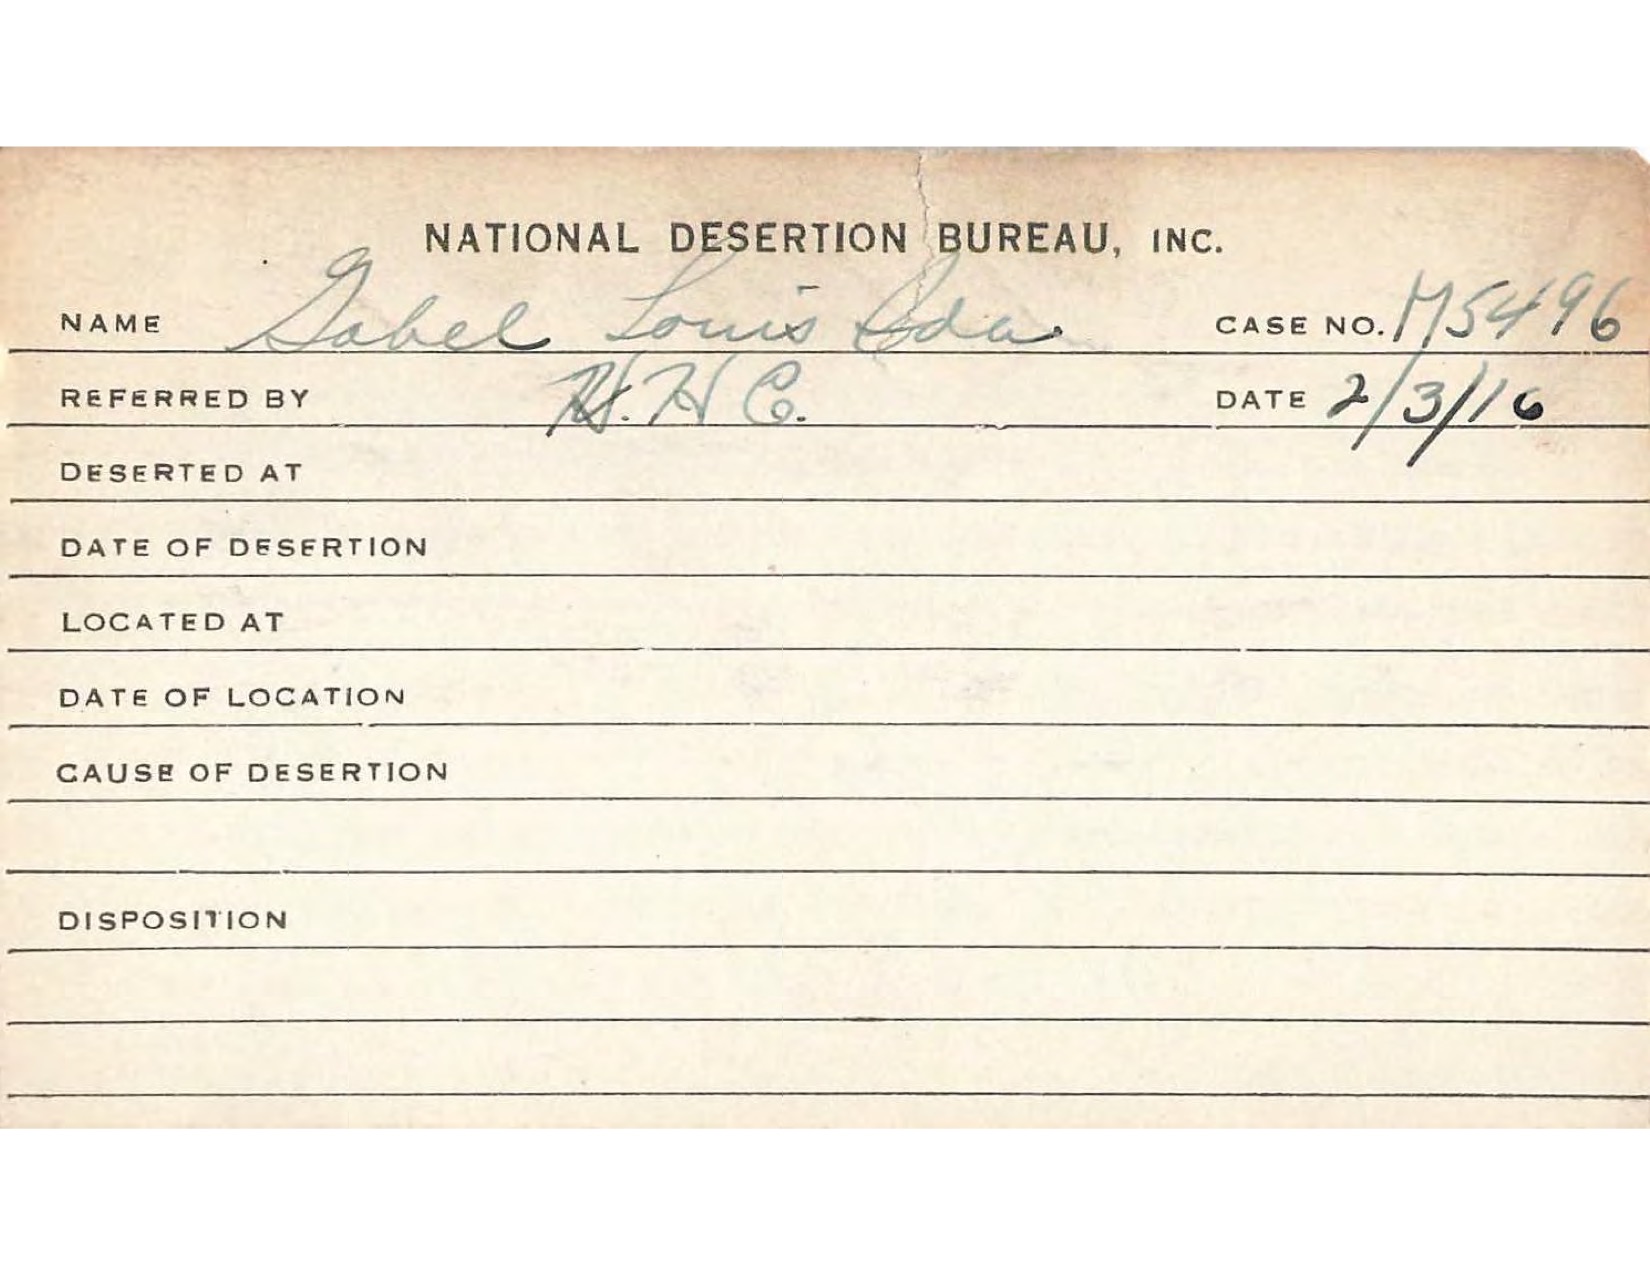 NATIONAL DESERTION BUREAU, INC.
NAME Gabel Louis Ida. CASE NO. M5496
REFERRED BY H. H C. DATE 2/3/16
DESERTED AT
DATE OF DESERTION
LOCATED AT
DATE OF LOCATION
CAUSE OF DESERTION
DISPOSITION